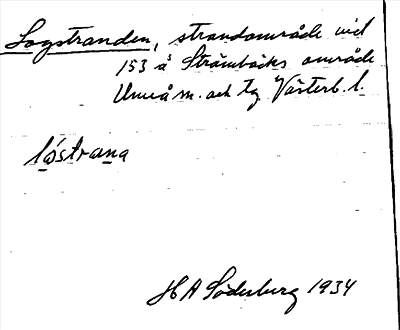 Logstranden, strandområde vid
153 å Strömbäcks område
Umeå m. och tg Västerb. l.
lóstrana
H A Söderberg 1934